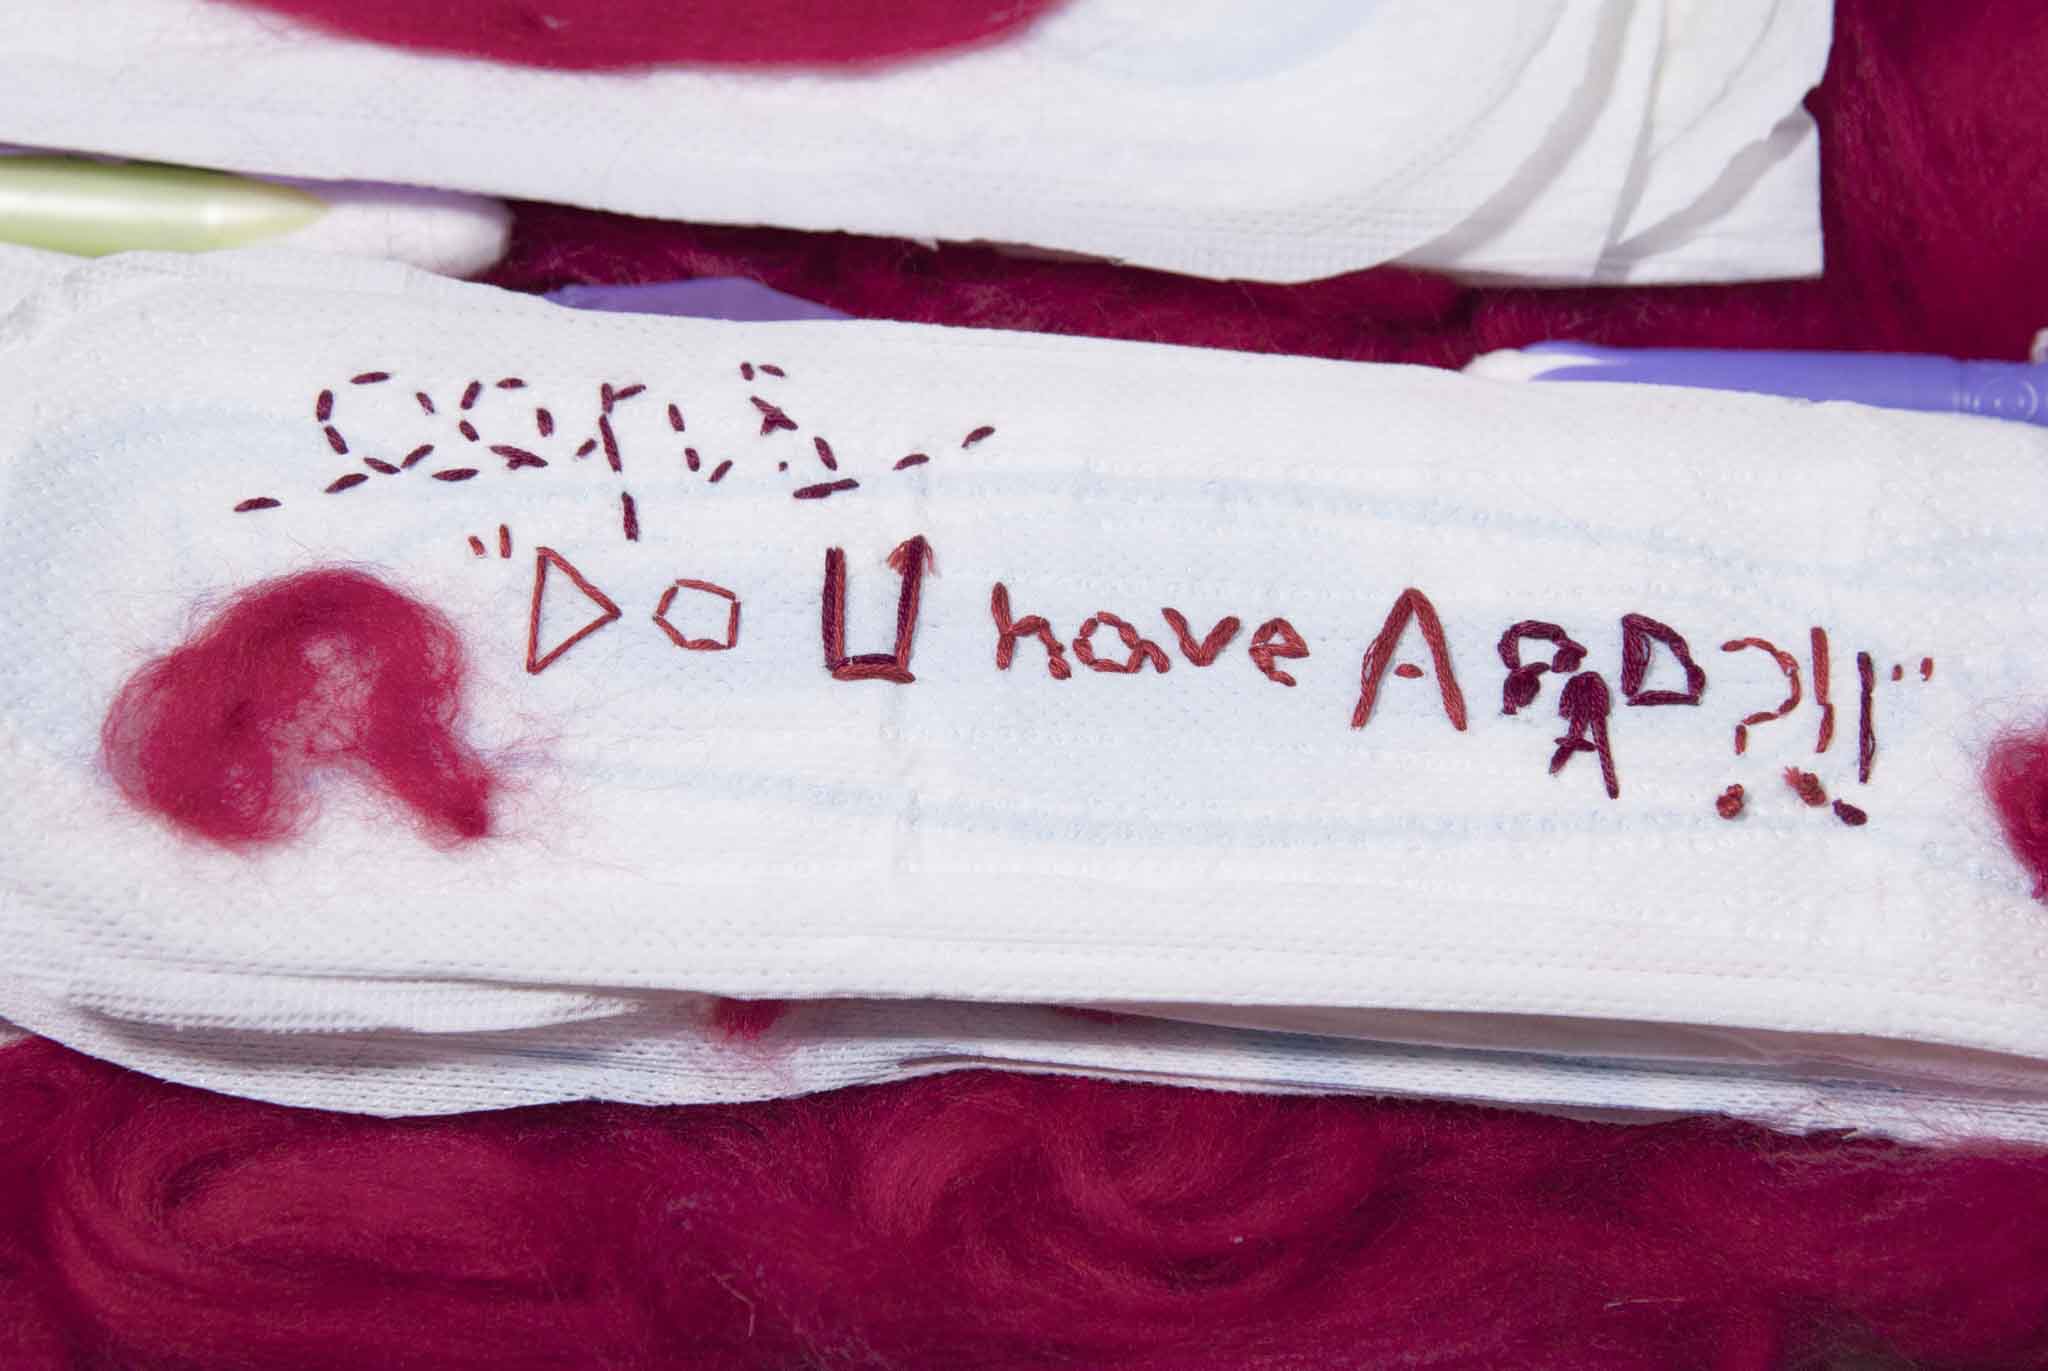 "Do U have A PAD?!!"